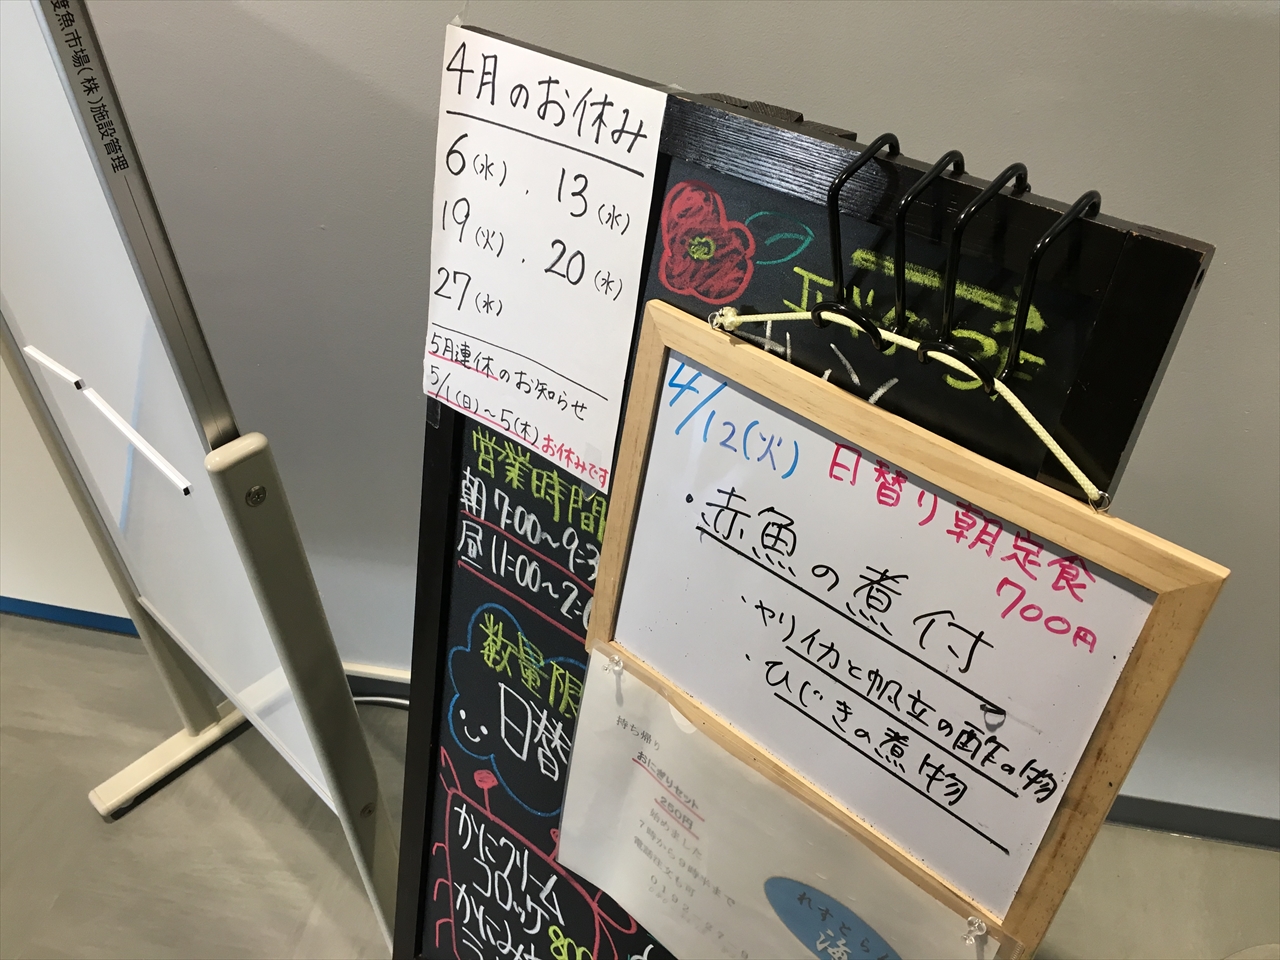 渡魚市場(株)施設管理
4月のお休み
6(水)、13(水)
19(火)、20(水)
27(水)
5月連休のお知らせ
5/1(日)〜5(木)お休みです
営業時間
朝7:00〜9:3
昼11:00〜2:
数量限
日替
かにクリーム
コロッケ
800
4/12(火)日替り朝定食
700円
・赤魚の煮付
・ヤリイカと帆立の酢の物
・ひじきの煮物
持ち帰り
おにぎりセット
250円
始めました
7時から9時半まで
電話注文も可
れすとらん
海